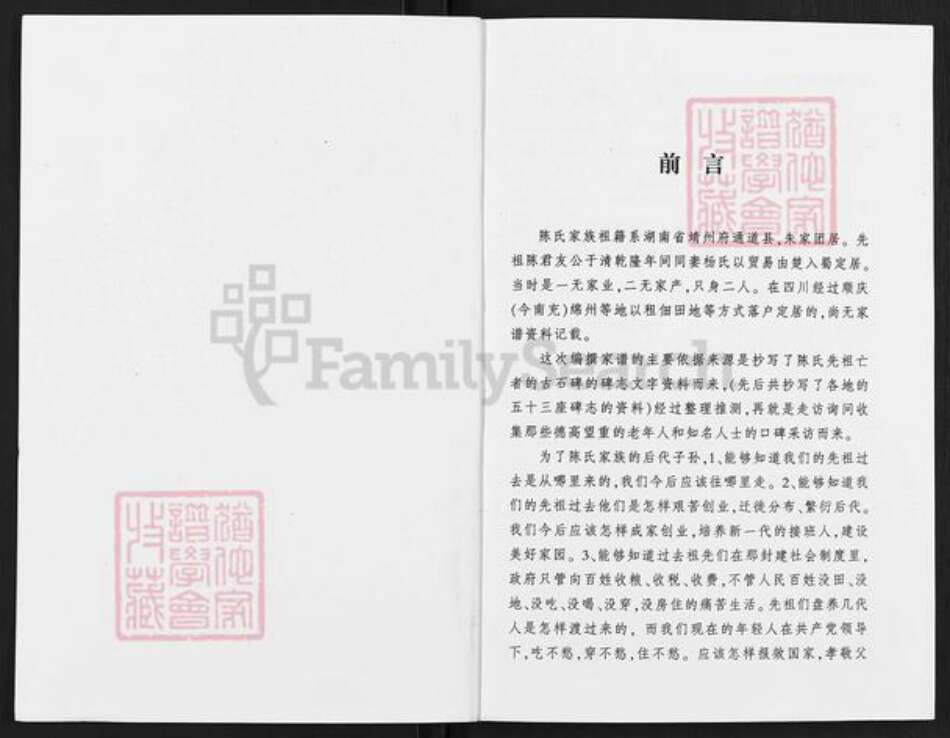 前言
陈氏家族祖籍系湖南省靖州府通道县,朱家团居。先
祖陈君友公于清乾隆年间同妻杨氏以贸易由楚入蜀定居。
当时是一无家业,二无家产,只身二人。在四川经过顺庆
(今南充)绵州等地以租佃田地等方式落户定居的,尚无家
谱资料记载。
这次编撰家谱的主要依据来源是抄写了陈氏先祖亡
者的古石碑的碑志文字资料而来,(先后共抄写了各地的
五十三座碑志的资料)经过整理推测,再就是走访询问收
集那些德高望重的老年人和知名人士的口碑采访而来。
为了陈氏家族的后代子孙,1、能够知道我们的先祖过
去是从哪里来的,我们今后应该往哪里走。2、能够知道我
们的先祖过去他们是怎样艰苦创业,迁徙分布、繁衍后代。
我们今后应该怎样成家创业,培养新一代的接班人,建设
美好家园。3、能够知道过去祖先们在那封建社会制度里,
政府只管向百姓收粮、收税、收费,不管人民百姓没田、没
地、没吃、没喝、没穿,没房住的痛苦生活。先祖们盘养几代
人是怎样渡过来的,而我们现在的年轻人在共产党领导
下,吃不愁,穿不愁,住不愁。应该怎样报效国家,孝敬父
FamilySearch
家
譜學會
收藏
家
譜學會
收藏